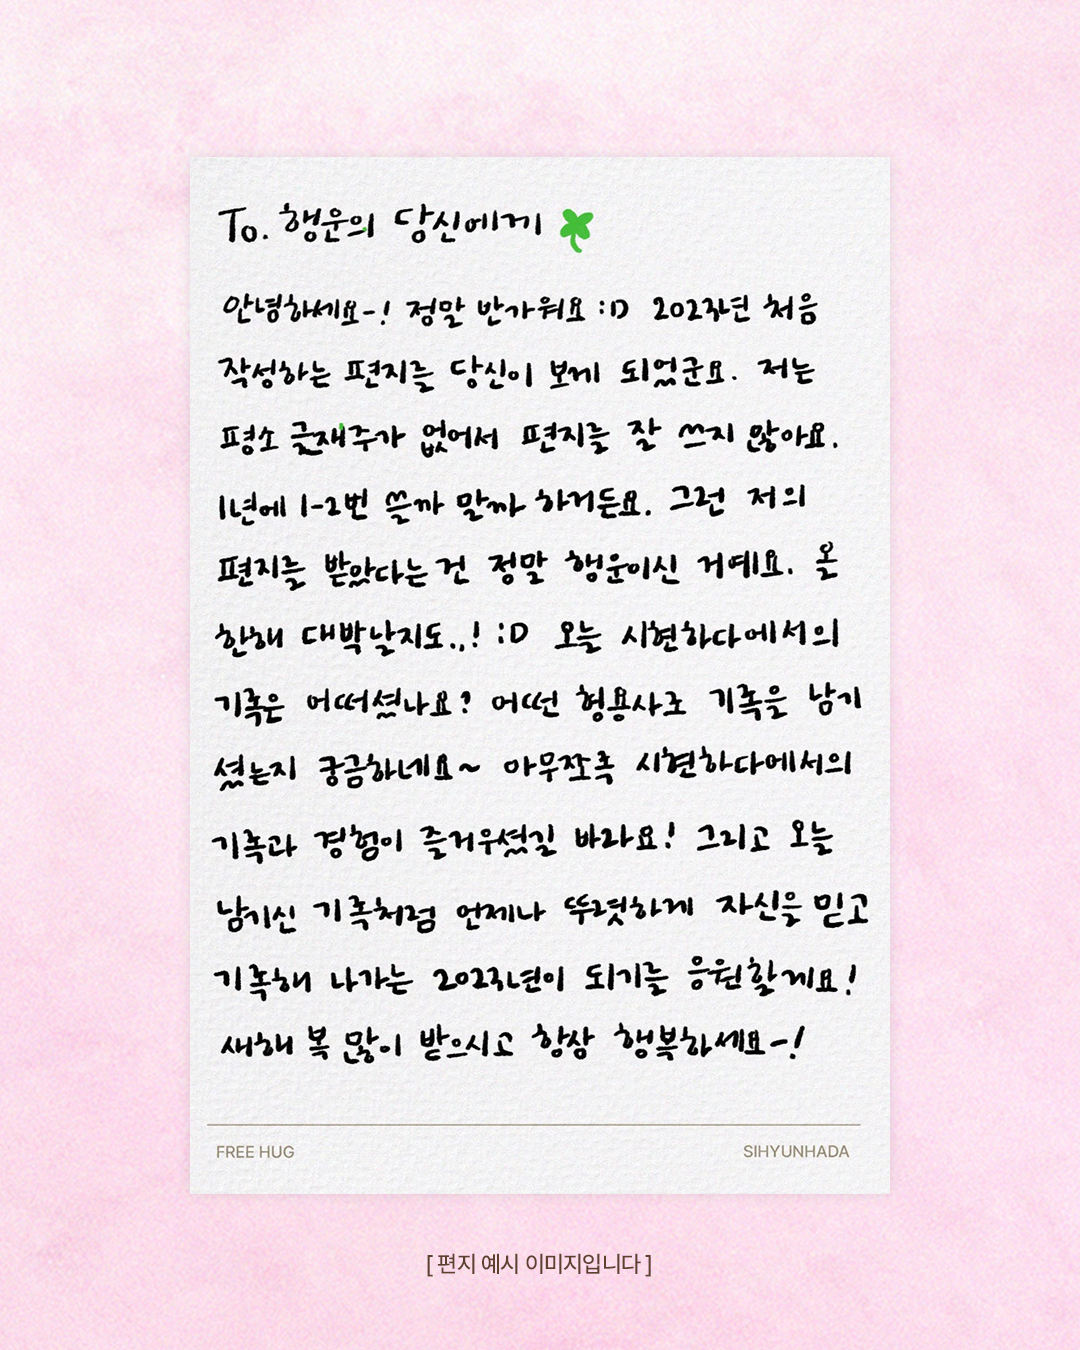 To. 행운의 당신에게
안녕하세요-! 정말 반가워요 :D 2023년 처음
작성하는 편지를 당신이 보게 되었군요. 저는
평소 글재주가 없어서 편지를 잘 쓰지 않아요.
1년에 1-2번 쓸까 말까 하거든요. 그런 저의
편지를 받았다는 건 정말 행운이신 거예요. 올
한해 대박날지도..! :D 오늘 시현하다에서의
기록은 어떠셨나요? 어떤 형용사로 기록을 남기
셨는지 궁금하네요~ 아무쪼록 시현하다에서의
기록과 경험이 즐거우셨길 바라요! 그리고 오늘
남기신 기록처럼 언제나 뚜렷하게 자신을 믿고
기록해 나가는 2023년이 되기를 응원할게요!
새해 복 많이 받으시고 항상 행복하세요-!
FREE HUG
SIHYUNHADA
[ 편지 예시 이미지입니다 ]